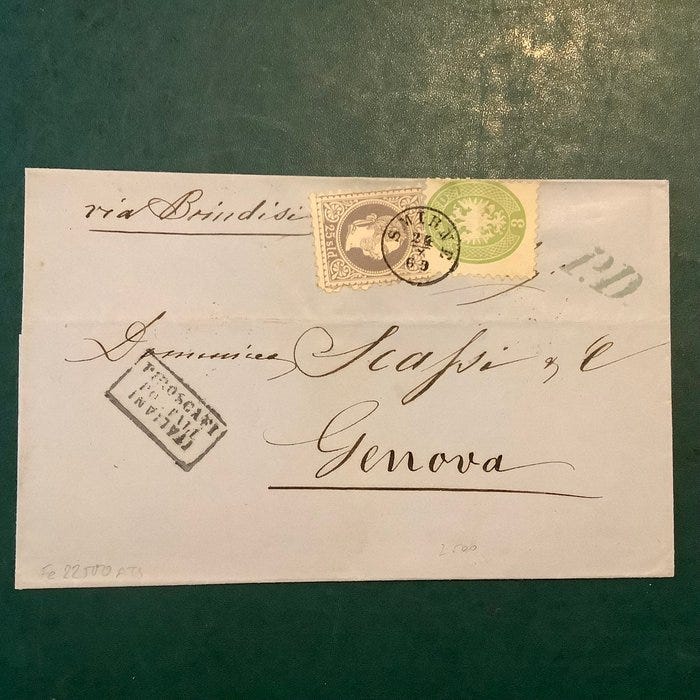 via Brindisi
25 sld
3
SMIRNE
24
X
69
P.D.
Domenico Scassi & C
PIROSCAFI
POSTALI
ITALIANI
Genova
2500
Fe 22500